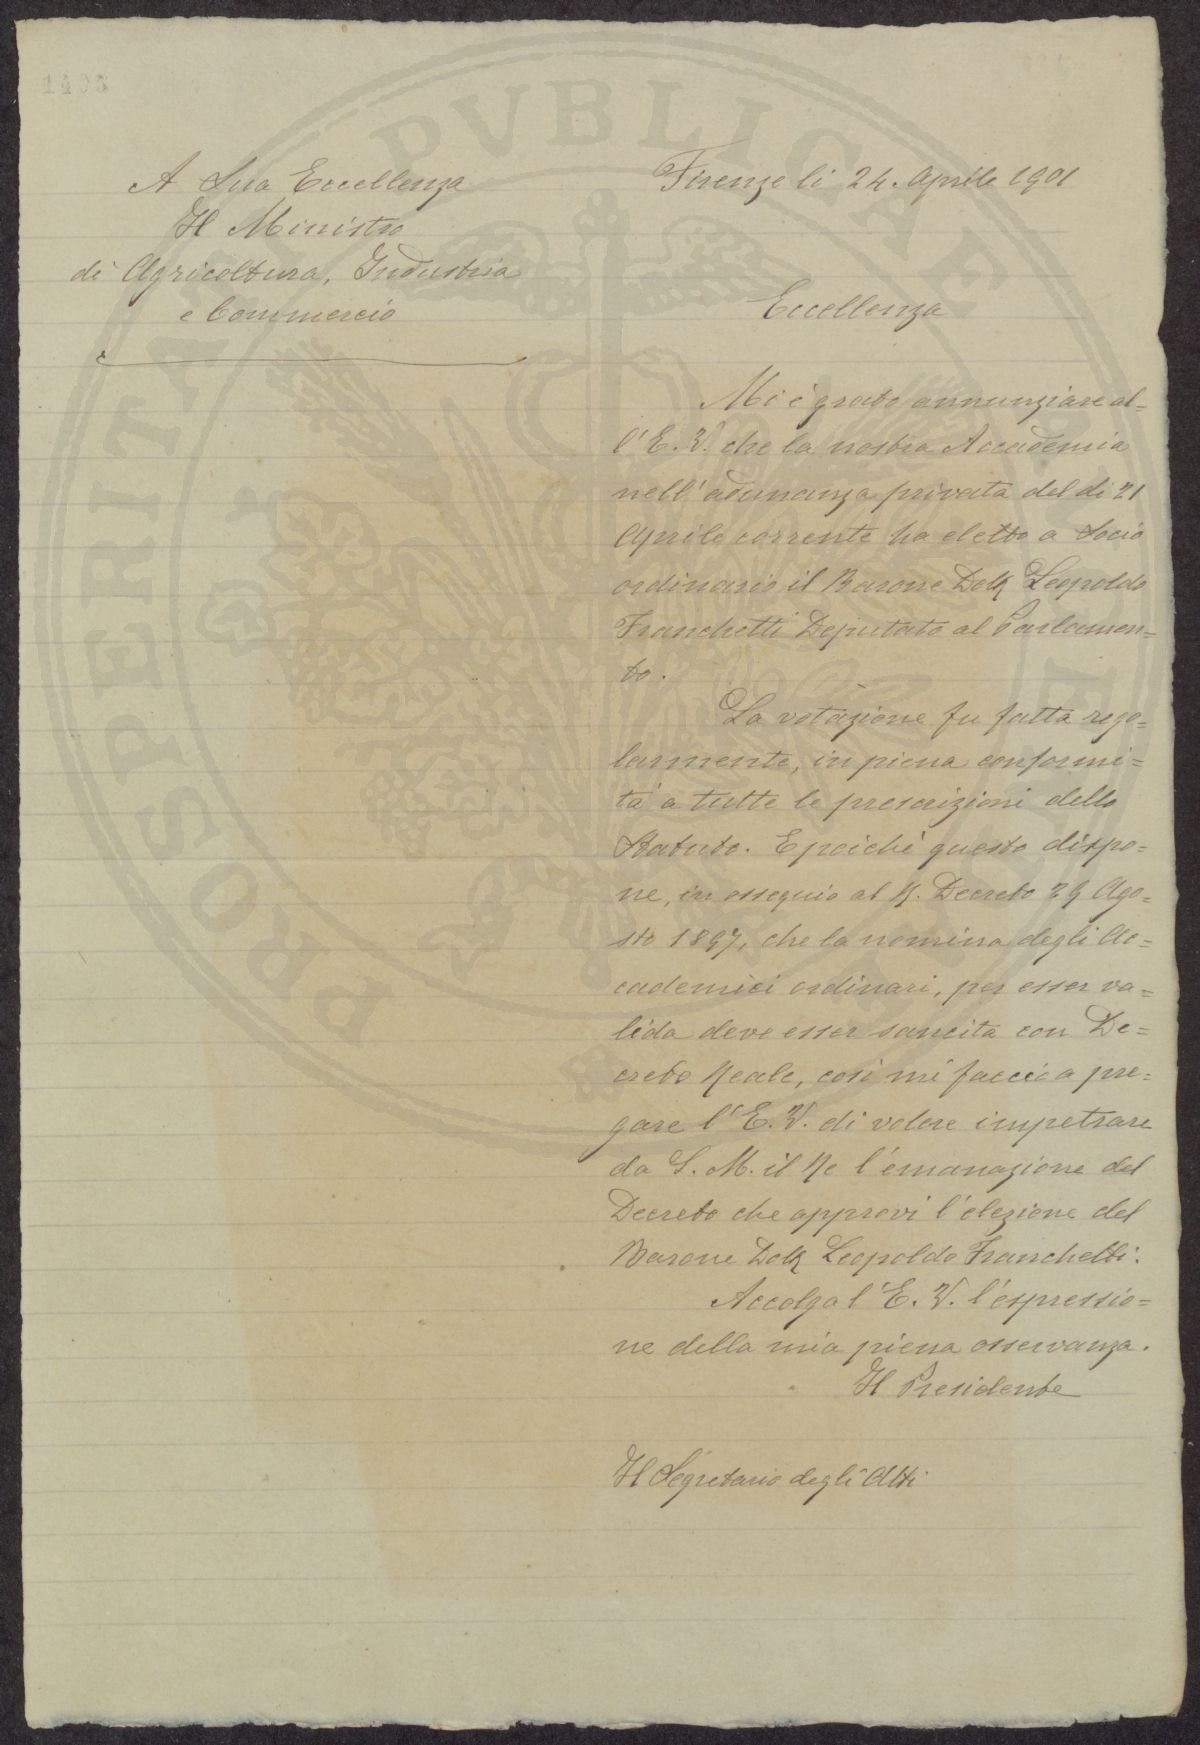 A Sua Eccellenza
Il Ministro
di Agricoltura, Industria
e Commercio
Firenze li 24. Aprile 1901
Eccellenza
Mi è grato annunziare al=
l'E. V. che la nostra Accademia
nell'adunanza privata del di 21
Aprile corrente ha eletto a Socio
ordinario il Barone Dott Leopoldo
Franchetti Deputato al Parlamen=
to.
La votazione fu fatta rego=
larmente, in piena conformi=
tà a tutte le prescrizioni dello
Statuto. E poichè questo dispo=
ne, in ossequio al R. Decreto 29 Ago=
sto 1897, che la nomina degli Ac=
cademici ordinari, per esser va=
lida deve esser sancita con De=
creto Reale, così mi faccio a pre=
gare l'E. V. di volere impetrare
da S. M. il Re l'emanazione del
Decreto che approvi l'elezione del
Barone Dott Leopoldo Franchetti.
Accolga l'E. V. l'espressio=
ne della mia piena osservanza.
Il Presidente
Il Segretario degli Atti
PROSPERITATI PVBLICAE